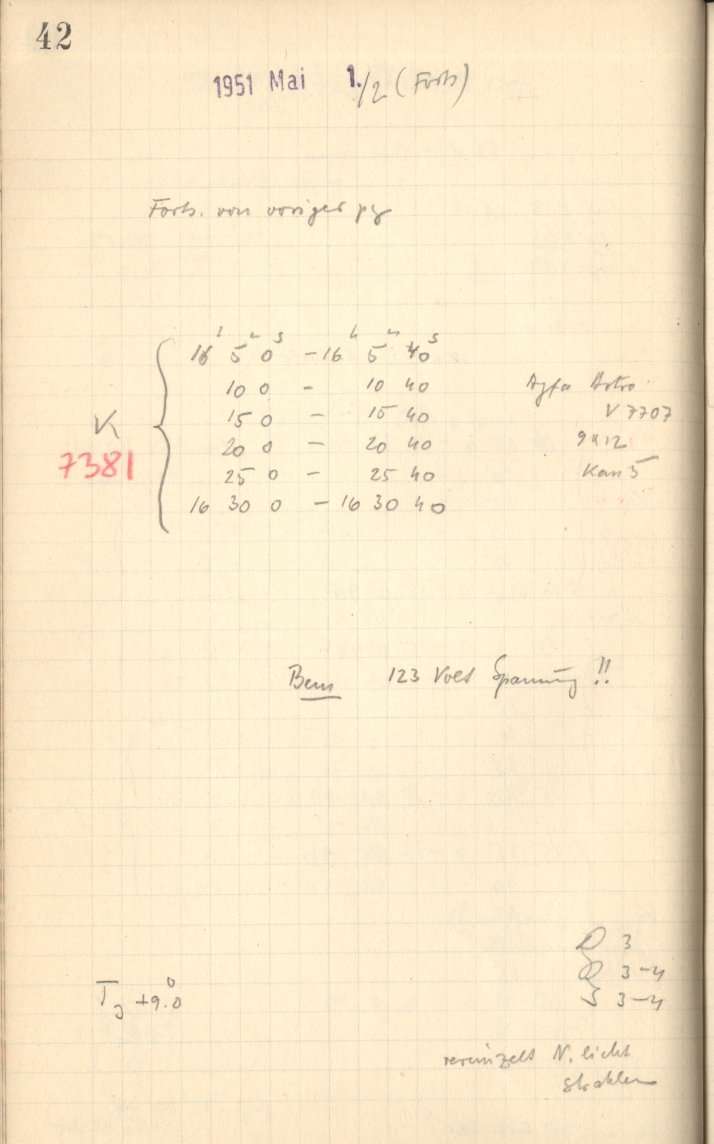 42
1951 Mai 1./2 (Forts)
Forts. von voriger pg
h m s h m s
16 5 0 - 16 5 40
10 0 - 10 40
15 0 - 15 40
20 0 - 20 40
25 0 - 25 40
16 30 0 - 16 30 40
K
7381
Agfa Astro
V 7707
9x12
Kan 5
Bem 123 Volt Spannung !!
3
3-4
S 3-4
T +9.0°
vereinzelt N. licht
strahlen